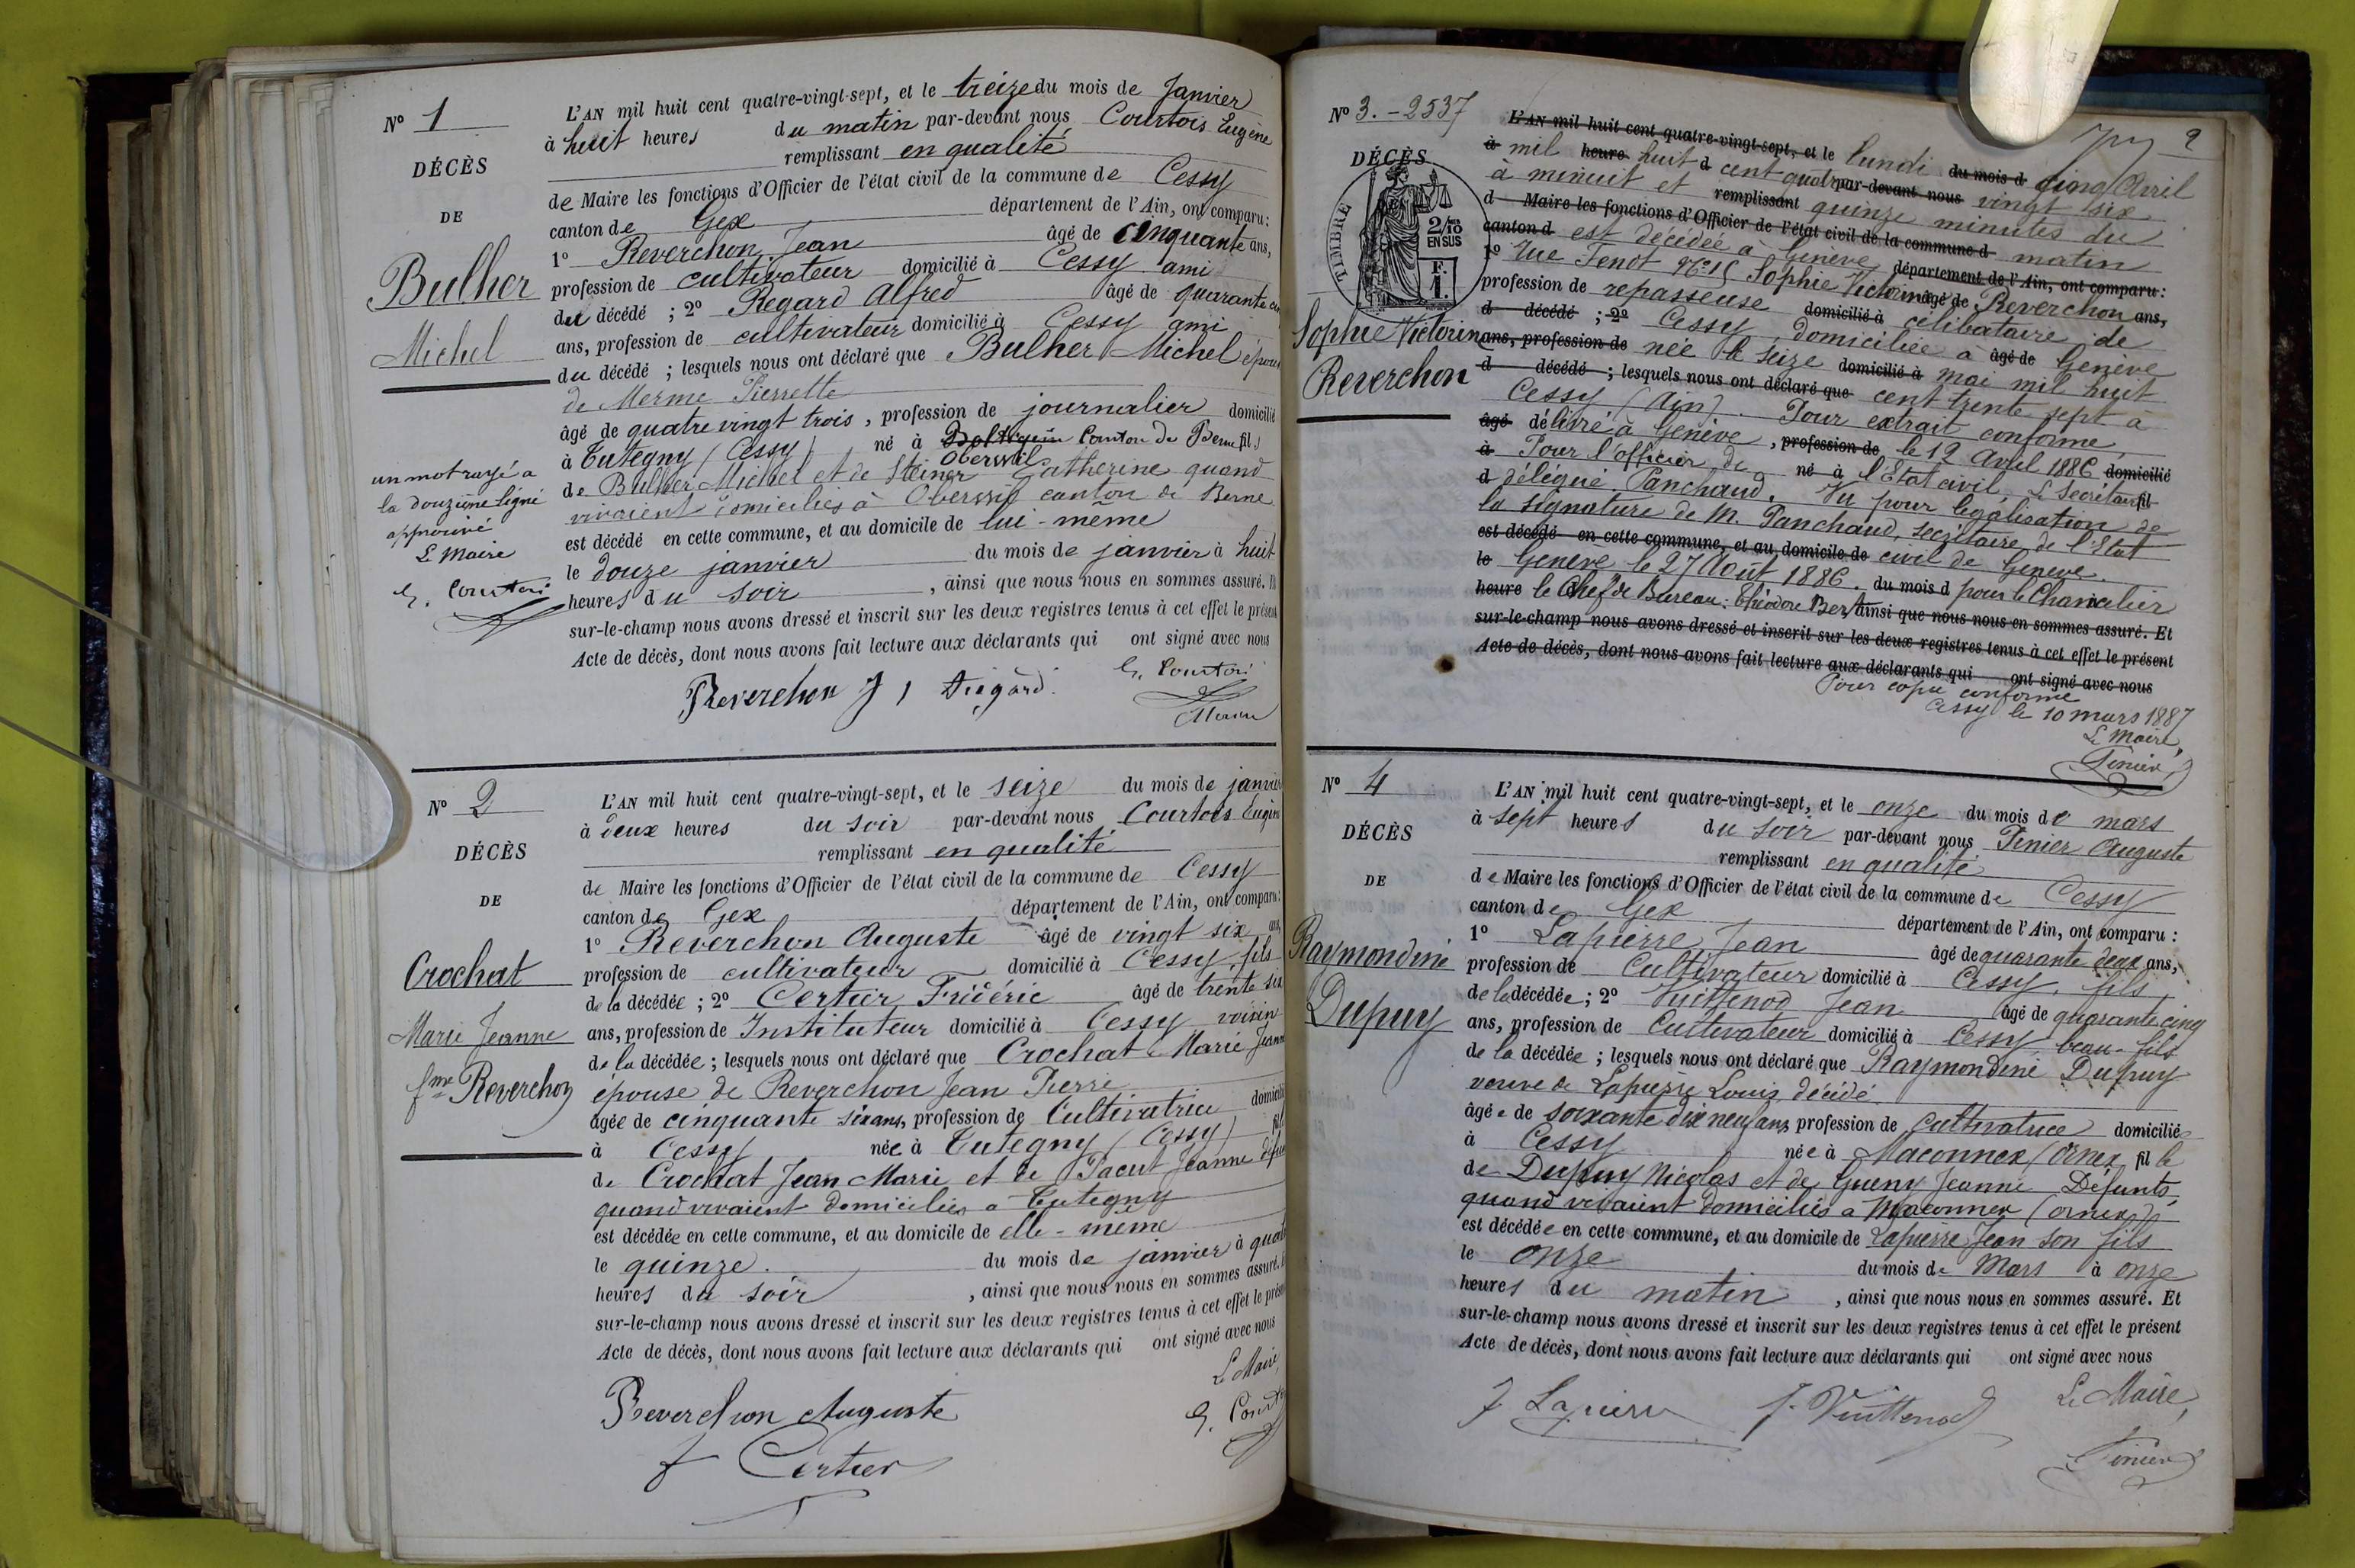 N° 1
DÉCÈS
DE
Bulher
Michel
un mot rayé a
la douzième ligne
approuvé
Le Maire
E. Courtois
L'AN mil huit cent quatre-vingt-sept, et le treize du mois de Janvier
à huit heures du matin par-devant nous Courtois Eugène
remplissant en qualité
de Maire les fonctions d'Officier de l'état civil de la commune de Cessy
canton de Gex département de l'Ain, ont comparu :
1° Reverchon Jean âgé de cinquante ans,
profession de cultivateur domicilié à Cessy ami
du décédé ; 2° Regard Alfred âgé de quarante
ans, profession de cultivateur domicilié à Cessy ami
du décédé ; lesquels nous ont déclaré que Bulher Michel époux
de Merme Pierrette
âgé de quatre vingt trois, profession de journalier domicilié
à Tutegny (Cessy) né à Canton de Berne fils
Oberwil
de Bulher Michel et de Steiner Catherine quand
vivaient domiciliés à Oberwil canton de Berne
est décédé en cette commune, et au domicile de lui-même
le douze janvier du mois de janvier à huit
heures du soir , ainsi que nous nous en sommes assuré. Et
sur-le-champ nous avons dressé et inscrit sur les deux registres tenus à cet effet le présent
Acte de décès, dont nous avons fait lecture aux déclarants qui ont signé avec nous
Reverchon J A Regard E. Courtois
Maire
N° 2
DÉCÈS
DE
Crochat
Marie Jeanne
fme Reverchon
L'AN mil huit cent quatre-vingt-sept, et le seize du mois de janvier
à deux heures du soir par-devant nous Courtois Eugène
remplissant en qualité
de Maire les fonctions d'Officier de l'état civil de la commune de Cessy
canton de Gex département de l'Ain, ont comparu :
1° Reverchon Auguste âgé de vingt six ans,
profession de cultivateur domicilié à Cessy fils
de la décédée ; 2° Certier Frédéric âgé de trente six
ans, profession de Instituteur domicilié à Cessy voisin
de la décédée ; lesquels nous ont déclaré que Crochat Marie Jeanne
épouse de Reverchon Jean Pierre
âgée de cinquante six ans, profession de Cultivatrice domicilié
à Cessy née à Tutegny (Cessy) fille
de Crochat Jean Marie et de Pacut Jeanne
quand vivaient domiciliés à Tutegny
est décédée en cette commune, et au domicile de elle-même
le quinze du mois de janvier à quatre
heures du soir , ainsi que nous nous en sommes assuré. Et
sur-le-champ nous avons dressé et inscrit sur les deux registres tenus à cet effet le présent
Acte de décès, dont nous avons fait lecture aux déclarants qui ont signé avec nous
Le Maire,
Reverchon Auguste E. Courtois
F Certier
2
N° 3. - 2537
DÉCÈS
TIMBRE
2/10 EN SUS
Sophie Victorine
Reverchon
L'AN mil huit cent quatre-vingt-sept, et le lundi du mois d cinq Avril
à mil heure huit d cent quatre par-devant nous vingt six
à minuit et remplissant quinze minutes du
d Maire les fonctions d'Officier de l'état civil de la commune d matin
canton d est décédée à Genève département de l'Ain, ont comparu :
1° Rue Fendt N° 15 Sophie Victorine âgé de Reverchon ans,
profession de repasseuse domicilié à célibataire de
d décédé ; 2° Cessy domiciliée à âgé de Genève
ans, profession de née le seize domicilié à mai mil huit
d décédé ; lesquels nous ont déclaré que cent trente sept à
Cessy (Ain). Pour extrait conforme
âgé délivré à Genève, profession de le 12 Avril 1886 domicilié
à Pour l'officier de né à l'Etat civil, Le Secrétaire fil
d délégué. Panchaud. Vu pour légalisation de
la signature de M. Panchaud, secrétaire de l'Etat
est décédé en cette commune, et au domicile de civil de Genève.
le Genève le 27 Août 1886. du mois d pour le Chancelier
heure le Chef de Bureau : Théodore Bert ainsi que nous nous en sommes assuré. Et
sur-le-champ nous avons dressé et inscrit sur les deux registres tenus à cet effet le présent
Acte de décès, dont nous avons fait lecture aux déclarants qui ont signé avec nous
Pour copie conforme
Cessy le 10 mars 1887
Le Maire,
Tinier
N° 4
DÉCÈS
DE
Raymondine
Dupuy
L'AN mil huit cent quatre-vingt-sept, et le onze du mois de mars
à sept heures du soir par-devant nous Tinier Auguste
remplissant en qualité
de Maire les fonctions d'Officier de l'état civil de la commune de Cessy
canton de Gex département de l'Ain, ont comparu :
1° Lapierre Jean âgé de quarante deux ans,
profession de Cultivateur domicilié à Cessy, fils
de la décédée ; 2° Vuittenod Jean âgé de quarante cinq
ans, profession de Cultivateur domicilié à Cessy beau-fils
de la décédée ; lesquels nous ont déclaré que Raymondine Dupuy
veuve de Lapierre Louis décédé
âgée de soixante dix neuf ans, profession de Cultivatrice domiciliée
à Cessy née à Maconnex (Ornex) fille
de Dupuy Nicolas et de Gueny Jeanne Défunts,
quand vivaient domiciliés à Maconnex (Ornex)
est décédée en cette commune, et au domicile de Lapierre Jean son fils
le onze du mois de Mars à onze
heures du matin , ainsi que nous nous en sommes assuré. Et
sur-le-champ nous avons dressé et inscrit sur les deux registres tenus à cet effet le présent
Acte de décès, dont nous avons fait lecture aux déclarants qui ont signé avec nous
J Lapierre J. Vuittenod Le Maire,
Tinier